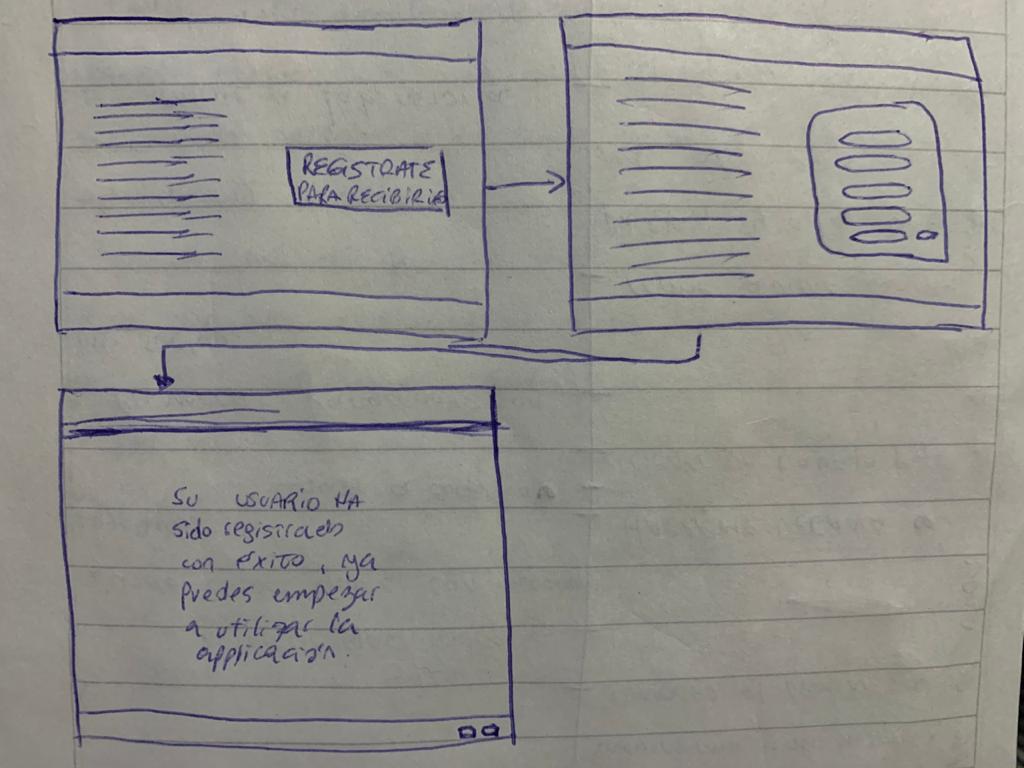 REGISTRATE
PARA RECIBIRLO
SU USUARIO HA
sido registrado
con éxito, ya
puedes empezar
a utilizar la
applicación.